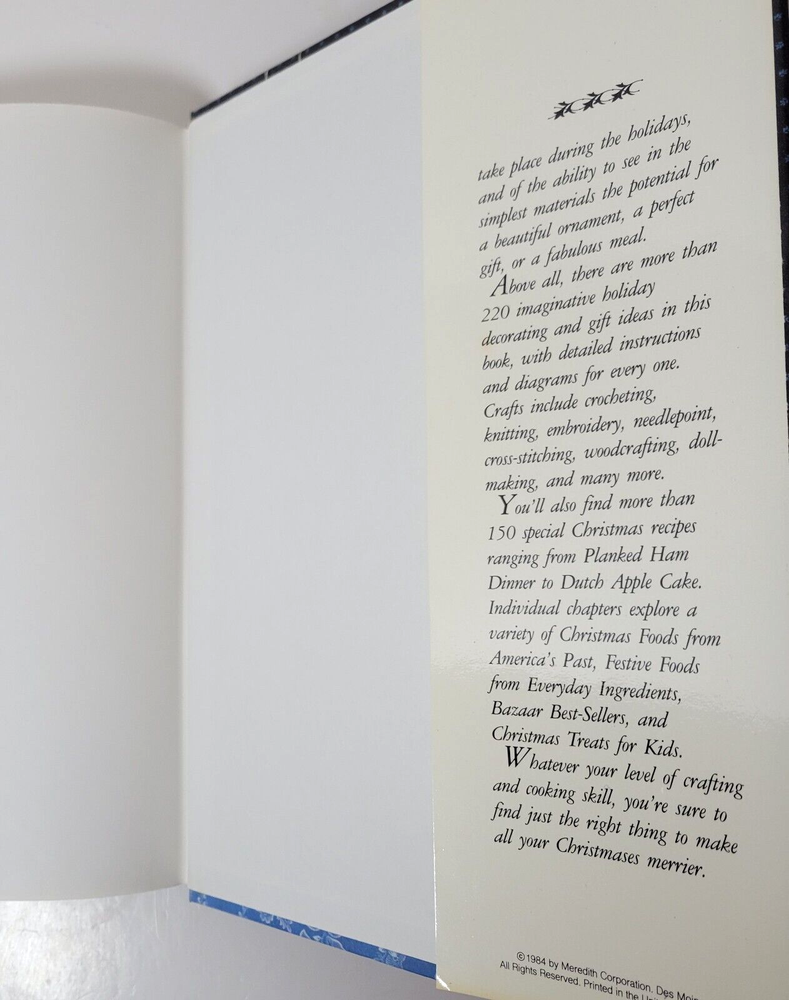 take place during the holidays,
and of the ability to see in the
simplest materials the potential for
a beautiful ornament, a perfect
gift, or a fabulous meal.
Above all, there are more than
220 imaginative holiday
decorating and gift ideas in this
book, with detailed instructions
and diagrams for every one.
Crafts include crocheting,
knitting, embroidery, needlepoint,
cross-stitching, woodcrafting, doll-
making, and many more.
You'll also find more than
150 special Christmas recipes
ranging from Planked Ham
Dinner to Dutch Apple Cake.
Individual chapters explore a
variety of Christmas Foods from
America's Past, Festive Foods
from Everyday Ingredients,
Bazaar Best-Sellers, and
Christmas Treats for Kids.
Whatever your level of crafting
and cooking skill, you're sure to
find just the right thing to make
all your Christmases merrier.
©1984 by Meredith Corporation. Des
All Rights Reserved. Printed in the